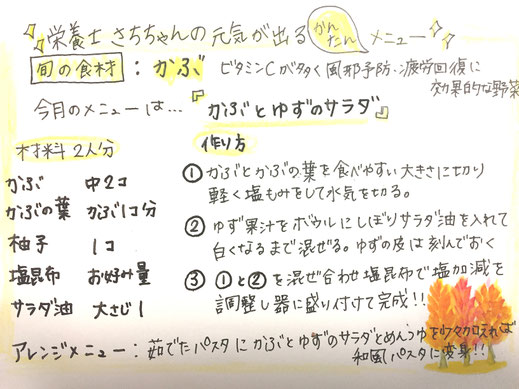 栄養士 さちちゃんの元気が出る かんたん メニュー
旬の食材：かぶ ビタミンCが多く風邪予防・疲労回復に
効果的な野菜
今月のメニューは… 『かぶとゆずのサラダ』
材料 2人分
かぶ 中2コ
かぶの葉 かぶ1コ分
柚子 1コ
塩昆布 お好み量
サラダ油 大さじ1
作り方
① かぶとかぶの葉を食べやすい大きさに切り
軽く塩もみをして水気を切る。
② ゆず果汁をボウルにしぼりサラダ油を入れて
白くなるまで混ぜる。ゆずの皮は刻んでおく
③ ①と②を混ぜ合わせ塩昆布で塩加減を
調整し器に盛り付けて完成!!
アレンジメニュー：茹でたパスタにかぶとゆずのサラダとめんつゆを少々加えれば
和風パスタに変身!!